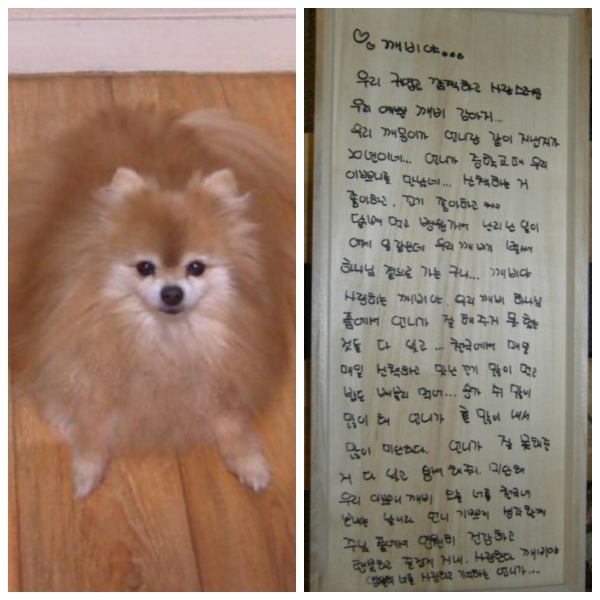 ♡ 깨비야...
우리 귀엽고 깜찍하고 사랑스러운
우리 예쁜 깨비 강아지...
우리 깨몽이가 언니랑 같이 지낸지가
10년이네... 언니가 중학교때 우리
이쁘니를 만났네... 산책하는 거
좋아하고, 고기 좋아하고
먹고 병원가서 난리 난 일이
어제 일 같은데 우리 깨비가 벌써
하나님 곁으로 가는 구나... 깨비야
사랑하는 깨비야. 우리 깨비 하나님
품에서 언니가 잘 해주지 못했던
것들 다 잊고... 천국에서 매일
매일 산책하고 맛난 고기 많이 먹고
밥도 배불리 먹어... 응가 쉬 많이
많이 해 언니가 혼 많이 내서
많이 미안하다. 언니가 잘 못해준
거 다 잊고 용서해줘. 미안해
우리 이쁘니 깨비 오늘 너를 천국에
보내는 날이라 언니 기쁘게 생각할게
주님 품에서 영원히 건강하고
행복하고 즐겁게 지내. 사랑한다 깨비야
영원히 너를 사랑하고 기억하는 언니가...